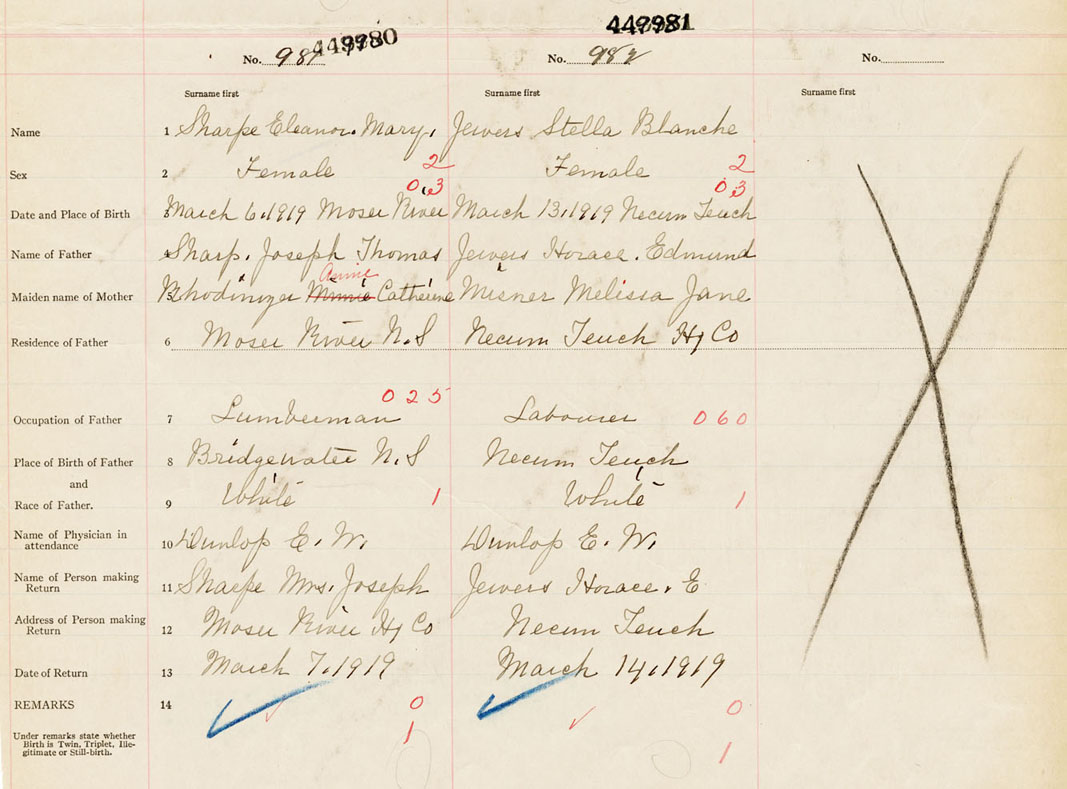 449980 449981
No. 981 No. 982 No.
Surname first Surname first Surname first
Name 1 Sharpe Eleanor. Mary. Jewers Stella Blanche
2 2
Sex 2 Female Female
03 03
Date and Place of Birth 3 March 6, 1919 Moser River March 13, 1919 Necum Teuch
Name of Father 4 Sharp. Joseph Thomas Jewers Horace. Edmund
Annie
Maiden name of Mother 5 Rhodinizer Minnie Catherine Misner Melissa Jane
Residence of Father 6 Moser River N.S Necum Teuch Hx Co
025
Occupation of Father 7 Lumberman Labourer 060
Place of Birth of Father 8 Bridgewater N.S Necum Teuch
and
Race of Father. 9 White 1 White 1
Name of Physician in
attendance 10 Dunlop E. W. Dunlop E. W.
Name of Person making
Return 11 Sharpe Mrs. Joseph Jewers Horace. E
Address of Person making
Return 12 Moser River Hx Co Necum Teuch
Date of Return 13 March 7, 1919 March 14, 1919
REMARKS 14 0 0
Under remarks state whether
Birth is Twin, Triplet, Ille-
gitimate or Still-birth. 1 1